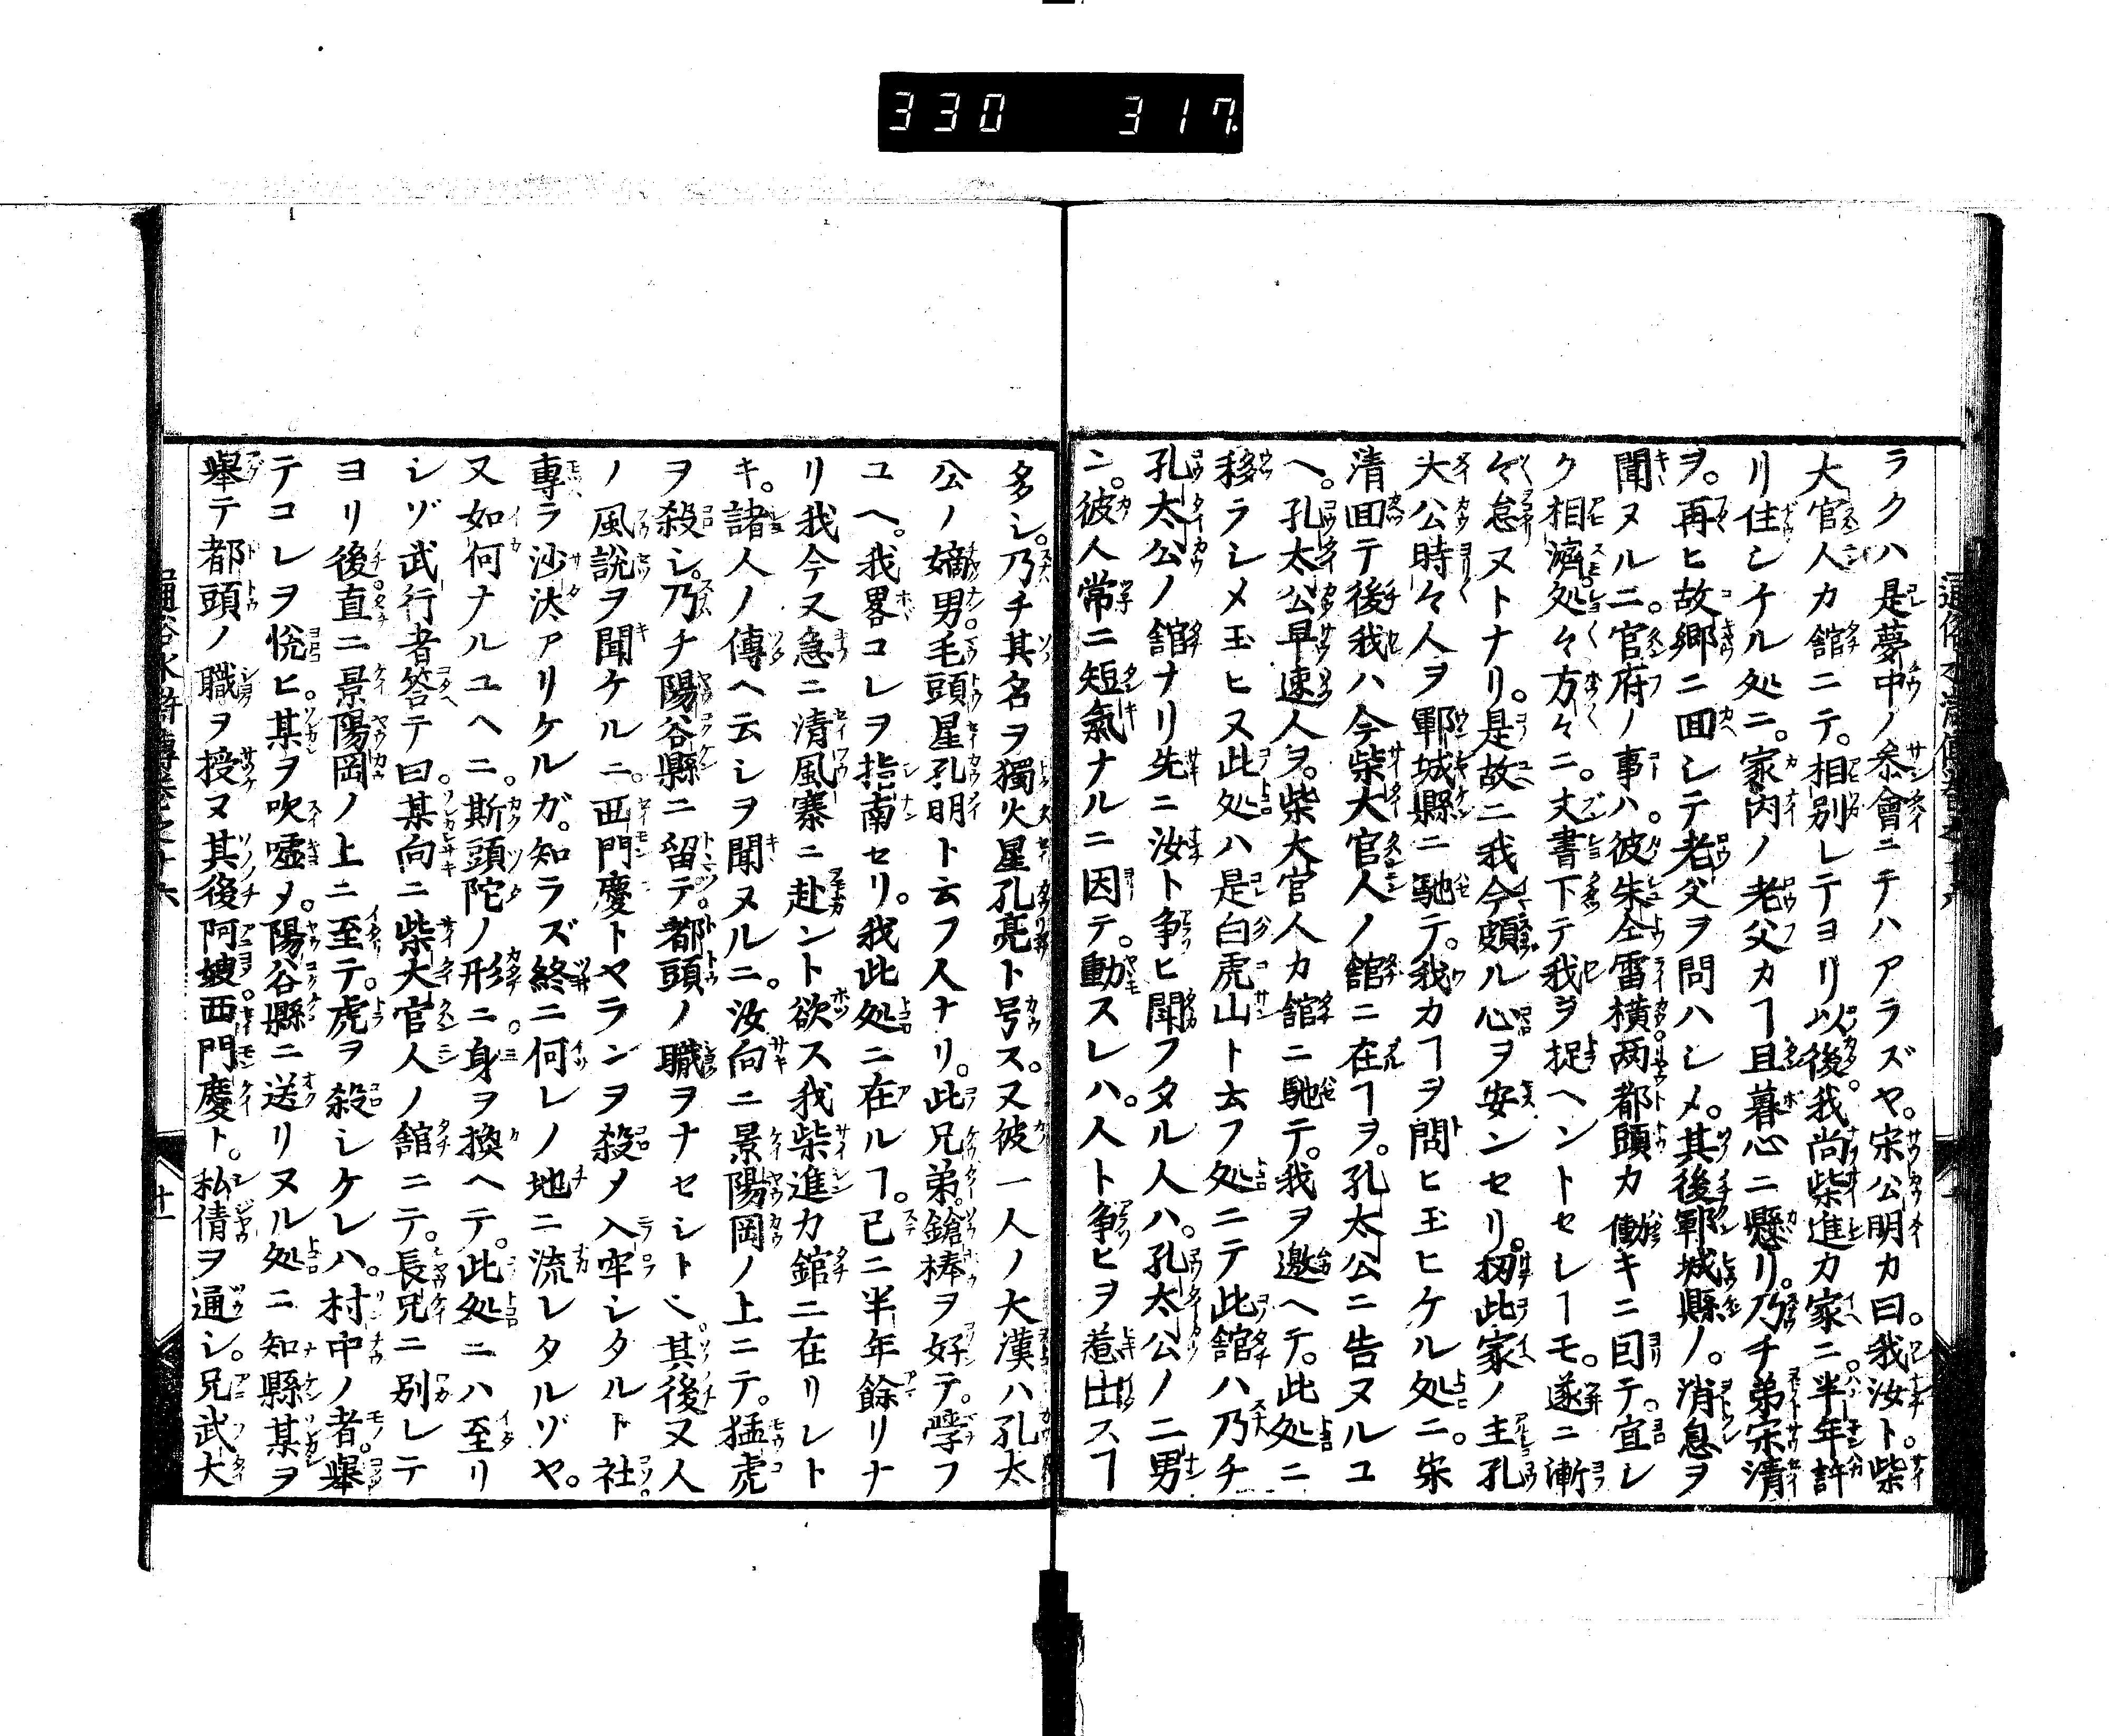 330 317.
ラクハ是夢中ノ参會ニテハアラズヤ。宋公明カ曰。我汝ト。柴
大官人カ舘ニテ。相別レテヨリ以後。我尚柴進カ家ニ。半年許
リ住シケル処ニ。家内ノ老父カヿ且暮心ニ懸リ。乃チ弟宋清
ヲ。再ヒ故郷ニ囬シテ老父ヲ問ハシメ。其後鄆城縣ノ。消息ヲ
聞ヌルニ。官府ノ事ハ。彼朱仝雷横两都頭カ働キニ因テ。宜シ
ク相濟。処々方々ニ。文書下テ我ヲ捉ヘントセシヿモ。遂ニ漸
々怠ヌトナリ。是故ニ我今頗ル心ヲ安ンセリ。扨此家ノ主孔
大公時々人ヲ鄆城縣ニ馳テ。我カヿヲ問ヒ玉ヒケル処ニ。宋
清囬テ後我ハ今柴大官人ノ舘ニ在ヿヲ。孔太公ニ告ヌルユ
ヘ。孔太公早速人ヲ。柴大官人カ舘ニ馳テ。我ヲ邀ヘテ。此処ニ
移ラシメ玉ヒヌ此処ハ是白虎山ト云フ処ニテ此舘ハ乃チ
孔太公ノ舘ナリ先ニ汝ト争ヒ聞フタル人ハ。孔太公ノ二男
ニ。彼人常ニ短氣ナルニ因テ。動スレハ。人ト争ヒヲ惹出スヿ
多シ。乃チ其名ヲ獨火星孔亮ト号ス。又彼一人ノ大漢ハ孔太
公ノ嫡男。毛頭星孔明ト云フ人ナリ。此兄弟。鎗棒ヲ好テ。學フ
ユヘ。我畧コレヲ指南セリ。我此処ニ在ルヿ。已ニ半年餘リナ
リ我今又急ニ清風寨ニ赴ント欲ス我柴進カ舘ニ在リシト
キ。諸人ノ傳ヘ云シヲ聞ヌルニ。汝向ニ景陽岡ノ上ニテ。猛虎
ヲ殺シ。乃チ陽谷縣ニ留テ。都頭ノ職ヲナセシト。其後又人
ノ風説ヲ聞ケルニ。西門慶トヤランヲ殺メ入牢シタルト社。
專ラ沙汰アリケルガ。知ラズ終ニ何レノ地ニ流レタルゾヤ。
又如何ナルユヘニ。斯頭陀ノ形ニ身ヲ換ヘテ。此処ニハ至リ
シゾ武行者答テ曰。某向ニ柴大官人ノ舘ニテ。長兄ニ別レテ
ヨリ後。直ニ景陽岡ノ上ニ至テ。虎ヲ殺シケレハ。村中ノ者。舉
テコレヲ悦ヒ。某ヲ吹噓メ。陽谷縣ニ送リヌル処ニ知縣某ヲ
舉テ都頭ノ職ヲ授ヌ其後阿嫂西門慶ト。私情ヲ通シ。兄武大
通俗水滸傳卷之十六
十一